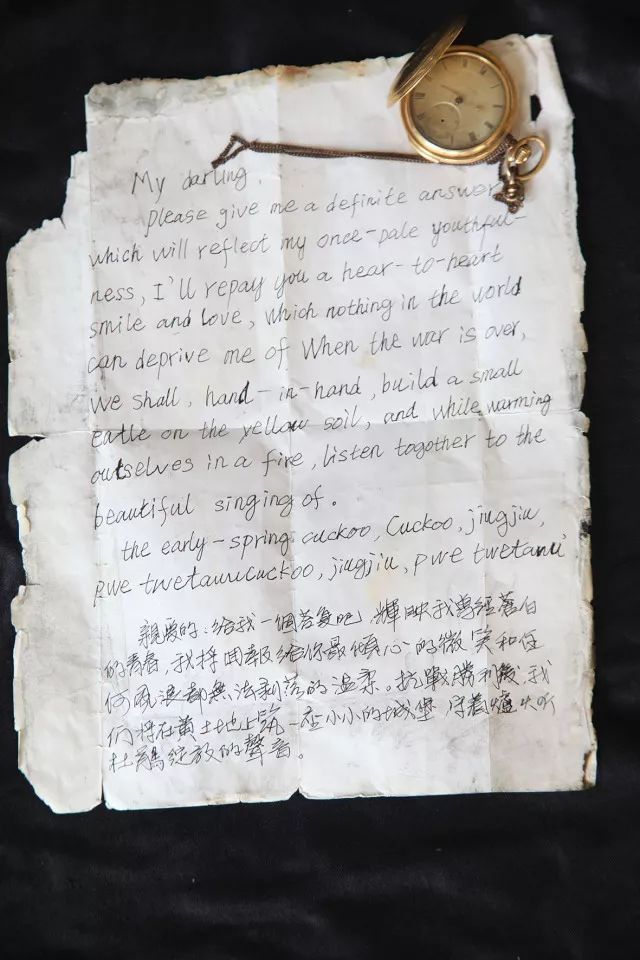 My darling,
please give me a definite answer
which will reflect my once-pale youthful-
ness, I'll repay you a hear-to-heart
smile and love, which nothing in the world
can deprive me of When the war is over,
we shall, hand-in-hand, build a small
eatle on the yellow soil, and while warming
outselves in a fire, listen togother to the
beautiful singing of.
the early-spring cuckoo, Cuckoo, jiugjiu,
pwe twetawucuckoo, jiugjiu, pwe twetawu
親爱的:给我一個答复吧,輝映我曾經蒼白
的青春,我将回報给你最傾心的微笑和任
何風浪都無法剥落的温柔。抗戰勝利後,我
们将在黄土地上筑一座小小的城堡,守着爐火听
杜鵑綻放的聲音。